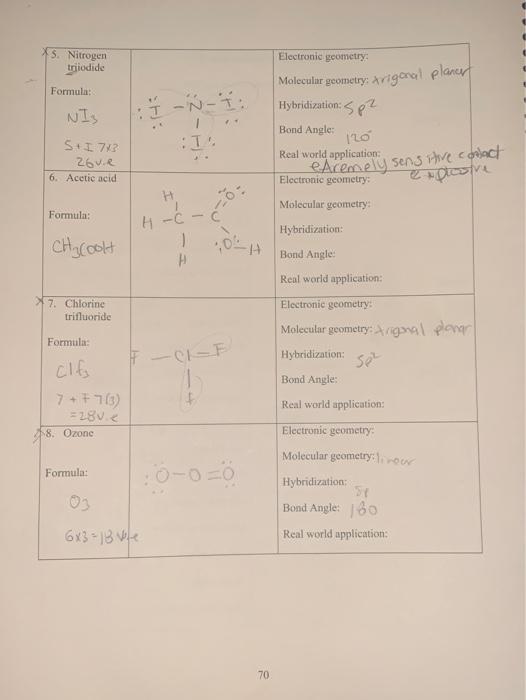 5. Nitrogen
triiodide
Formula:
NI3
5+I 7x3
26v.e
I - N - I
I
Electronic geometry:
Molecular geometry: trigonal planar
Hybridization: Sp2
Bond Angle: 120°
Real world application:
extremely sensitive contact
explosive
6. Acetic acid
Formula:
CH3COOH
H O
H - C - C
H O - H
Electronic geometry:
Molecular geometry:
Hybridization:
Bond Angle:
Real world application:
7. Chlorine
trifluoride
Formula:
Clf3
7 + F 7(3)
= 28v.e
F - Cl - F
f
Electronic geometry:
Molecular geometry: trigonal planar
Hybridization: Sp2
Bond Angle:
Real world application:
8. Ozone
Formula:
O3
6x3=18 v.e
:O-O=O
Electronic geometry:
Molecular geometry: linear
Hybridization: Sp
Bond Angle: 180
Real world application:
70